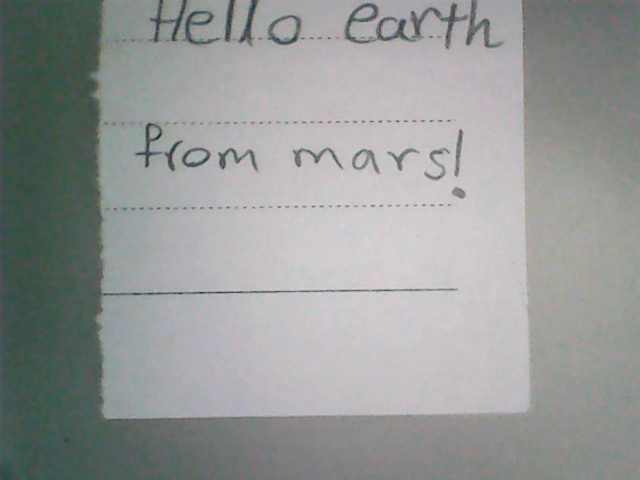 Hello earth
from mars!